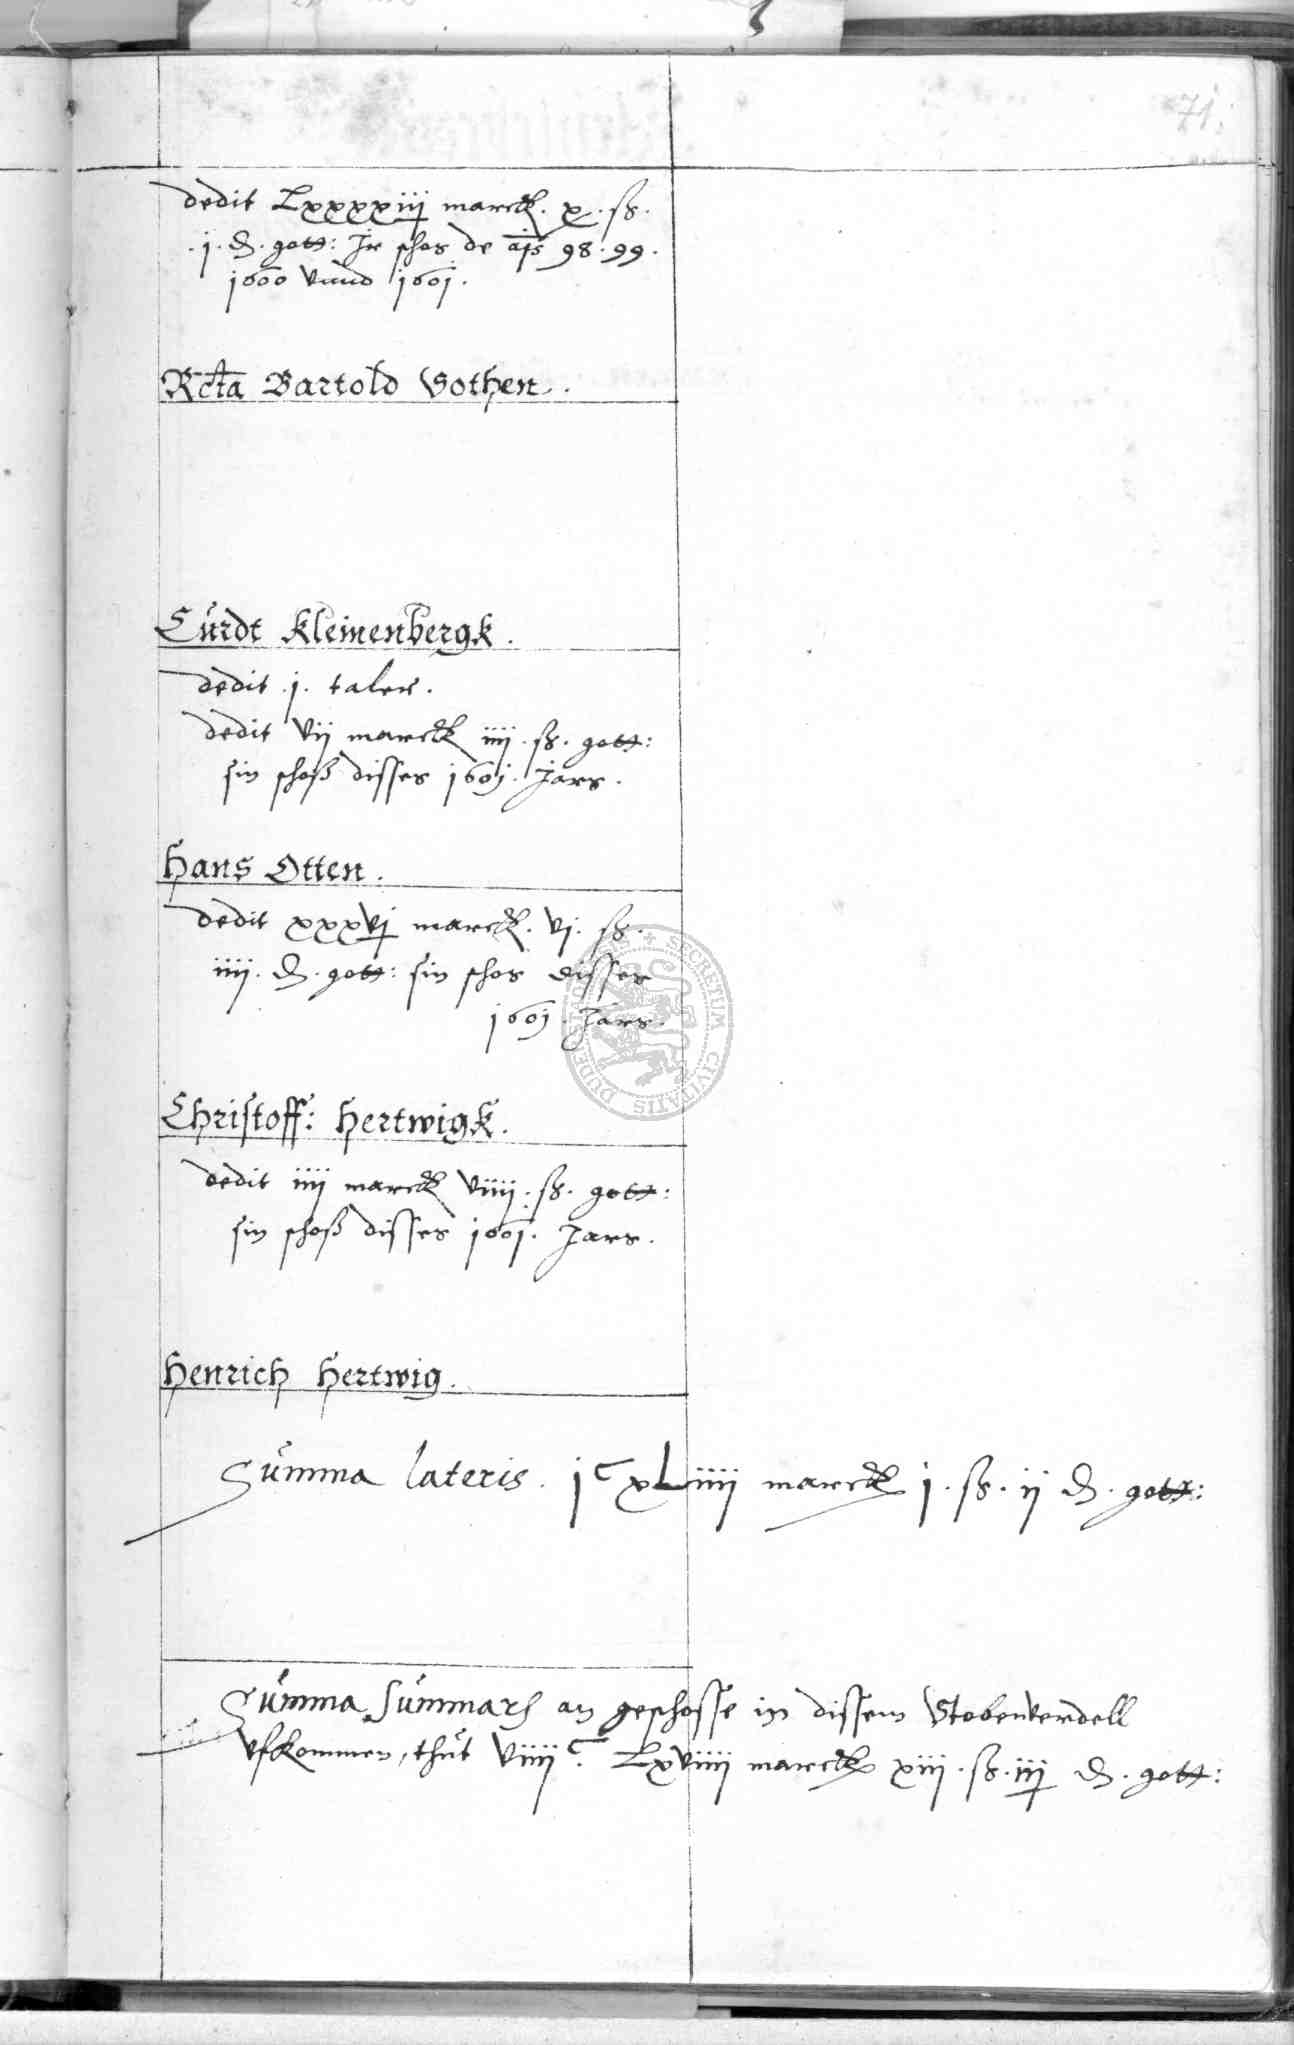 71.
dedit Lxxxxiij marck. x. ß.
.j. ₰. gott: Jr schos de ajs 98. 99.
1600 vnnd 1601.
Rcta Bartold Vothen.
Curdt Kleinenbergk.
dedit .j. taler.
dedit vij marck iiij. ß. gott:
sin schoß disses 1601. Jars.
Hans Otten.
dedit xxxvj marck. vj. ß.
iiij. ₰. gott: sin schos disses
1601. Jars.
Christoff: Hertwigk.
dedit iiij marck viiij. ß. gott:
sin schoß disses 1601. Jars.
Henrich Hertwig.
Summa lateris. jᶜ xLiiij marck j. ß. ij ₰. gott:
Summa Summarum an geschosse in dissem Stobenverdell
vfkommen, thut viiijᶜ. Lxviiij marck xiij. ß. iij ₰. gott:
SECRETUM CIVITATIS DUDERSTADENSIS